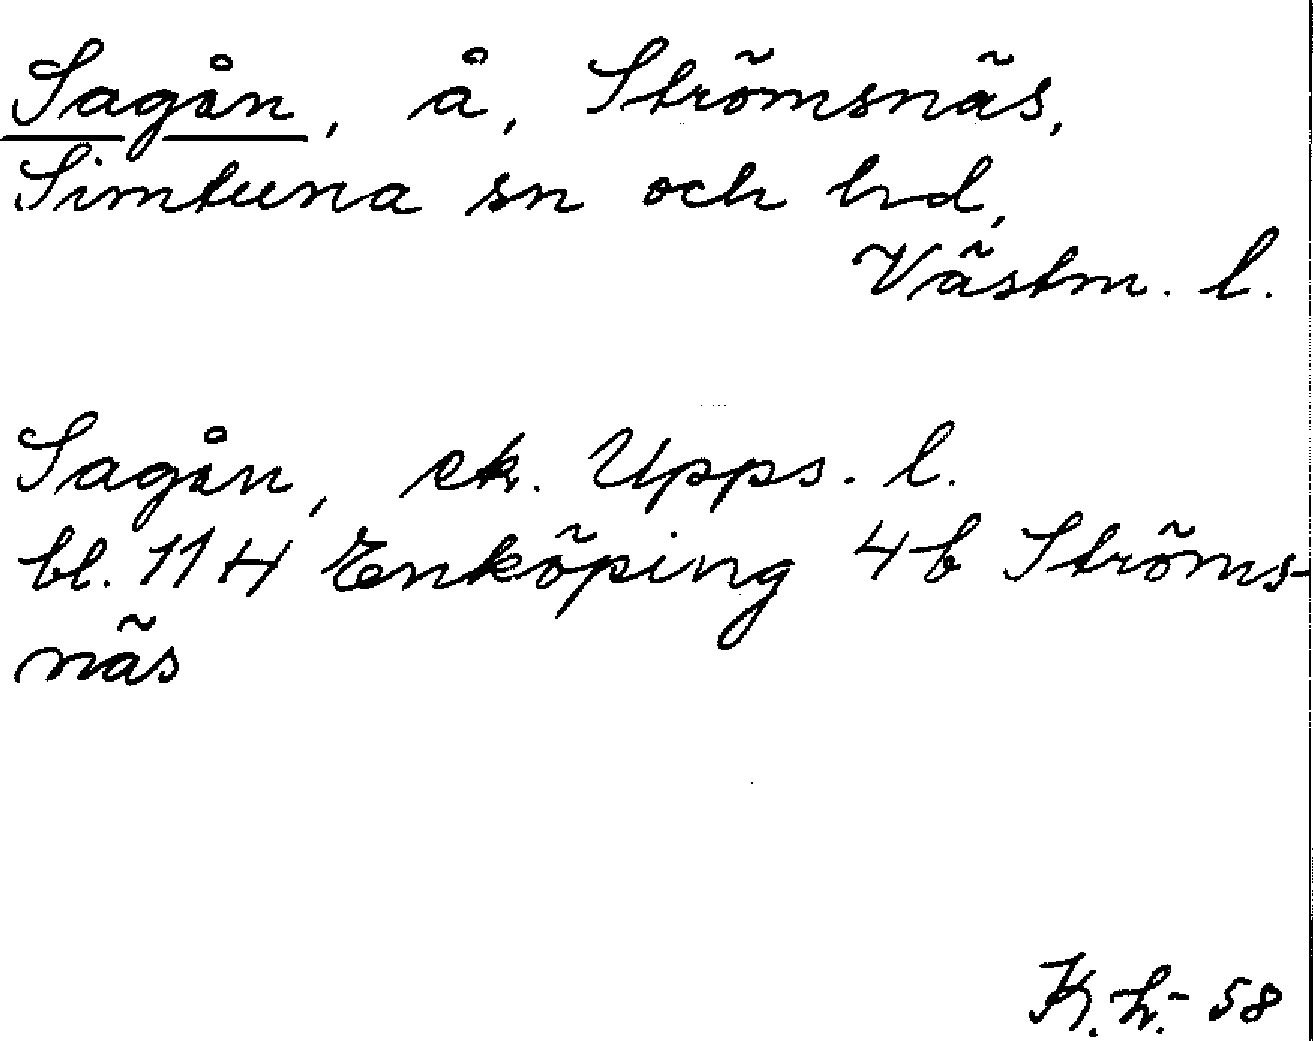 Sagån, å, Strömsnäs,
Simtuna sn och hd,
Västm. l.
Sagån, ek. Upps. l.
bl. 114 Enköping 4b Ströms-
näs
K. L. - 58